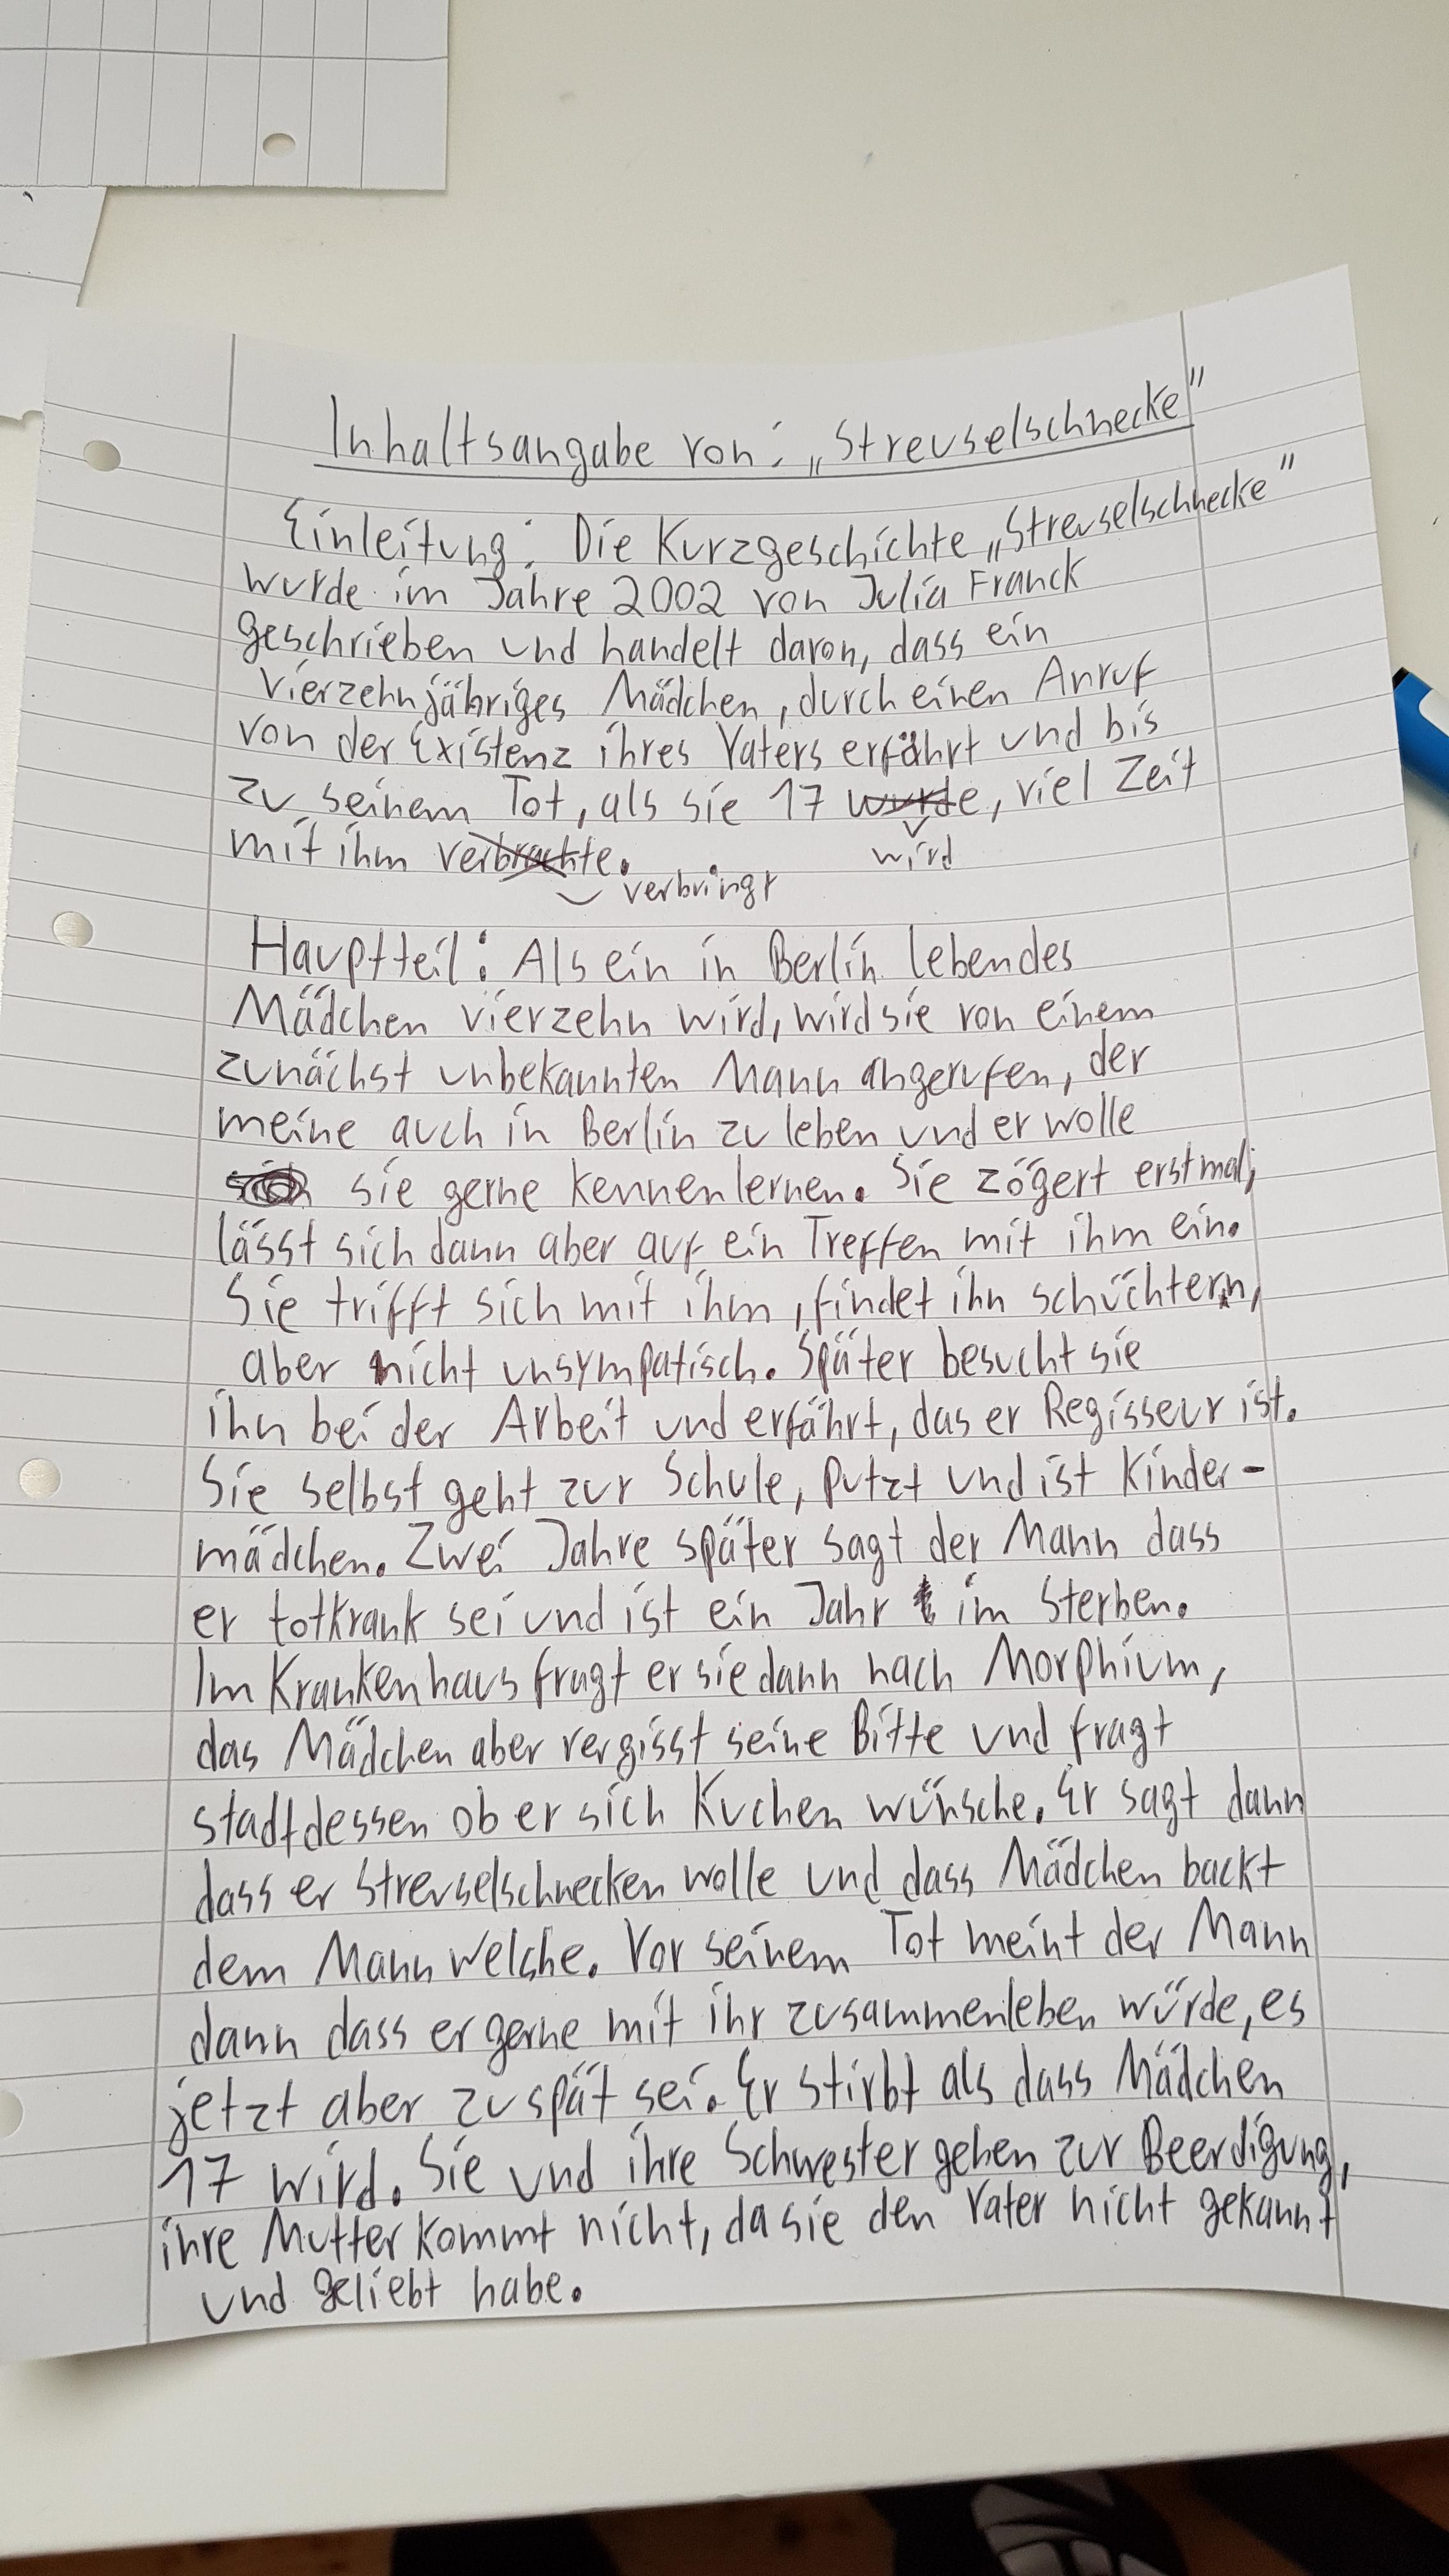 Inhaltsangabe von: „Streuselschnecke"
Einleitung: Die Kurzgeschichte „Streuselschnecke"
wurde im Jahre 2002 von Julia Franck
geschrieben und handelt davon, dass ein
vierzehnjähriges Mädchen, durch einen Anruf
von der Existenz ihres Vaters erfährt und bis
zu seinem Tot, als sie 17 wurde, viel Zeit
wird
mit ihm verbrachte.
verbringt
Hauptteil: Als ein in Berlin lebendes
Mädchen vierzehn wird, wird sie von einem
zunächst unbekannten Mann angerufen, der
meine auch in Berlin zu leben und er wolle
sie gerne kennenlernen. Sie zögert erstmal,
lässt sich dann aber auf ein Treffen mit ihm ein.
Sie trifft sich mit ihm, findet ihn schüchtern,
aber nicht unsympatisch. Später besucht sie
ihn bei der Arbeit und erfährt, das er Regisseur ist.
Sie selbst geht zur Schule, putzt und ist Kinder-
mädchen. Zwei Jahre später sagt der Mann dass
er totkrank sei und ist ein Jahr im Sterben.
Im Krankenhaus fragt er sie dann nach Morphium,
das Mädchen aber vergisst seine Bitte und fragt
stadtdessen ob er sich Kuchen wünsche. Er sagt dann
dass er Streuselschnecken wolle und dass Mädchen backt
dem Mann welche. Vor seinem Tot meint der Mann
dann dass er gerne mit ihr zusammenleben würde, es
jetzt aber zu spät sei. Er stirbt als dass Mädchen
17 wird. Sie und ihre Schwester gehen zur Beerdigung,
ihre Mutter kommt nicht, da sie den Vater nicht gekannt
und geliebt habe.